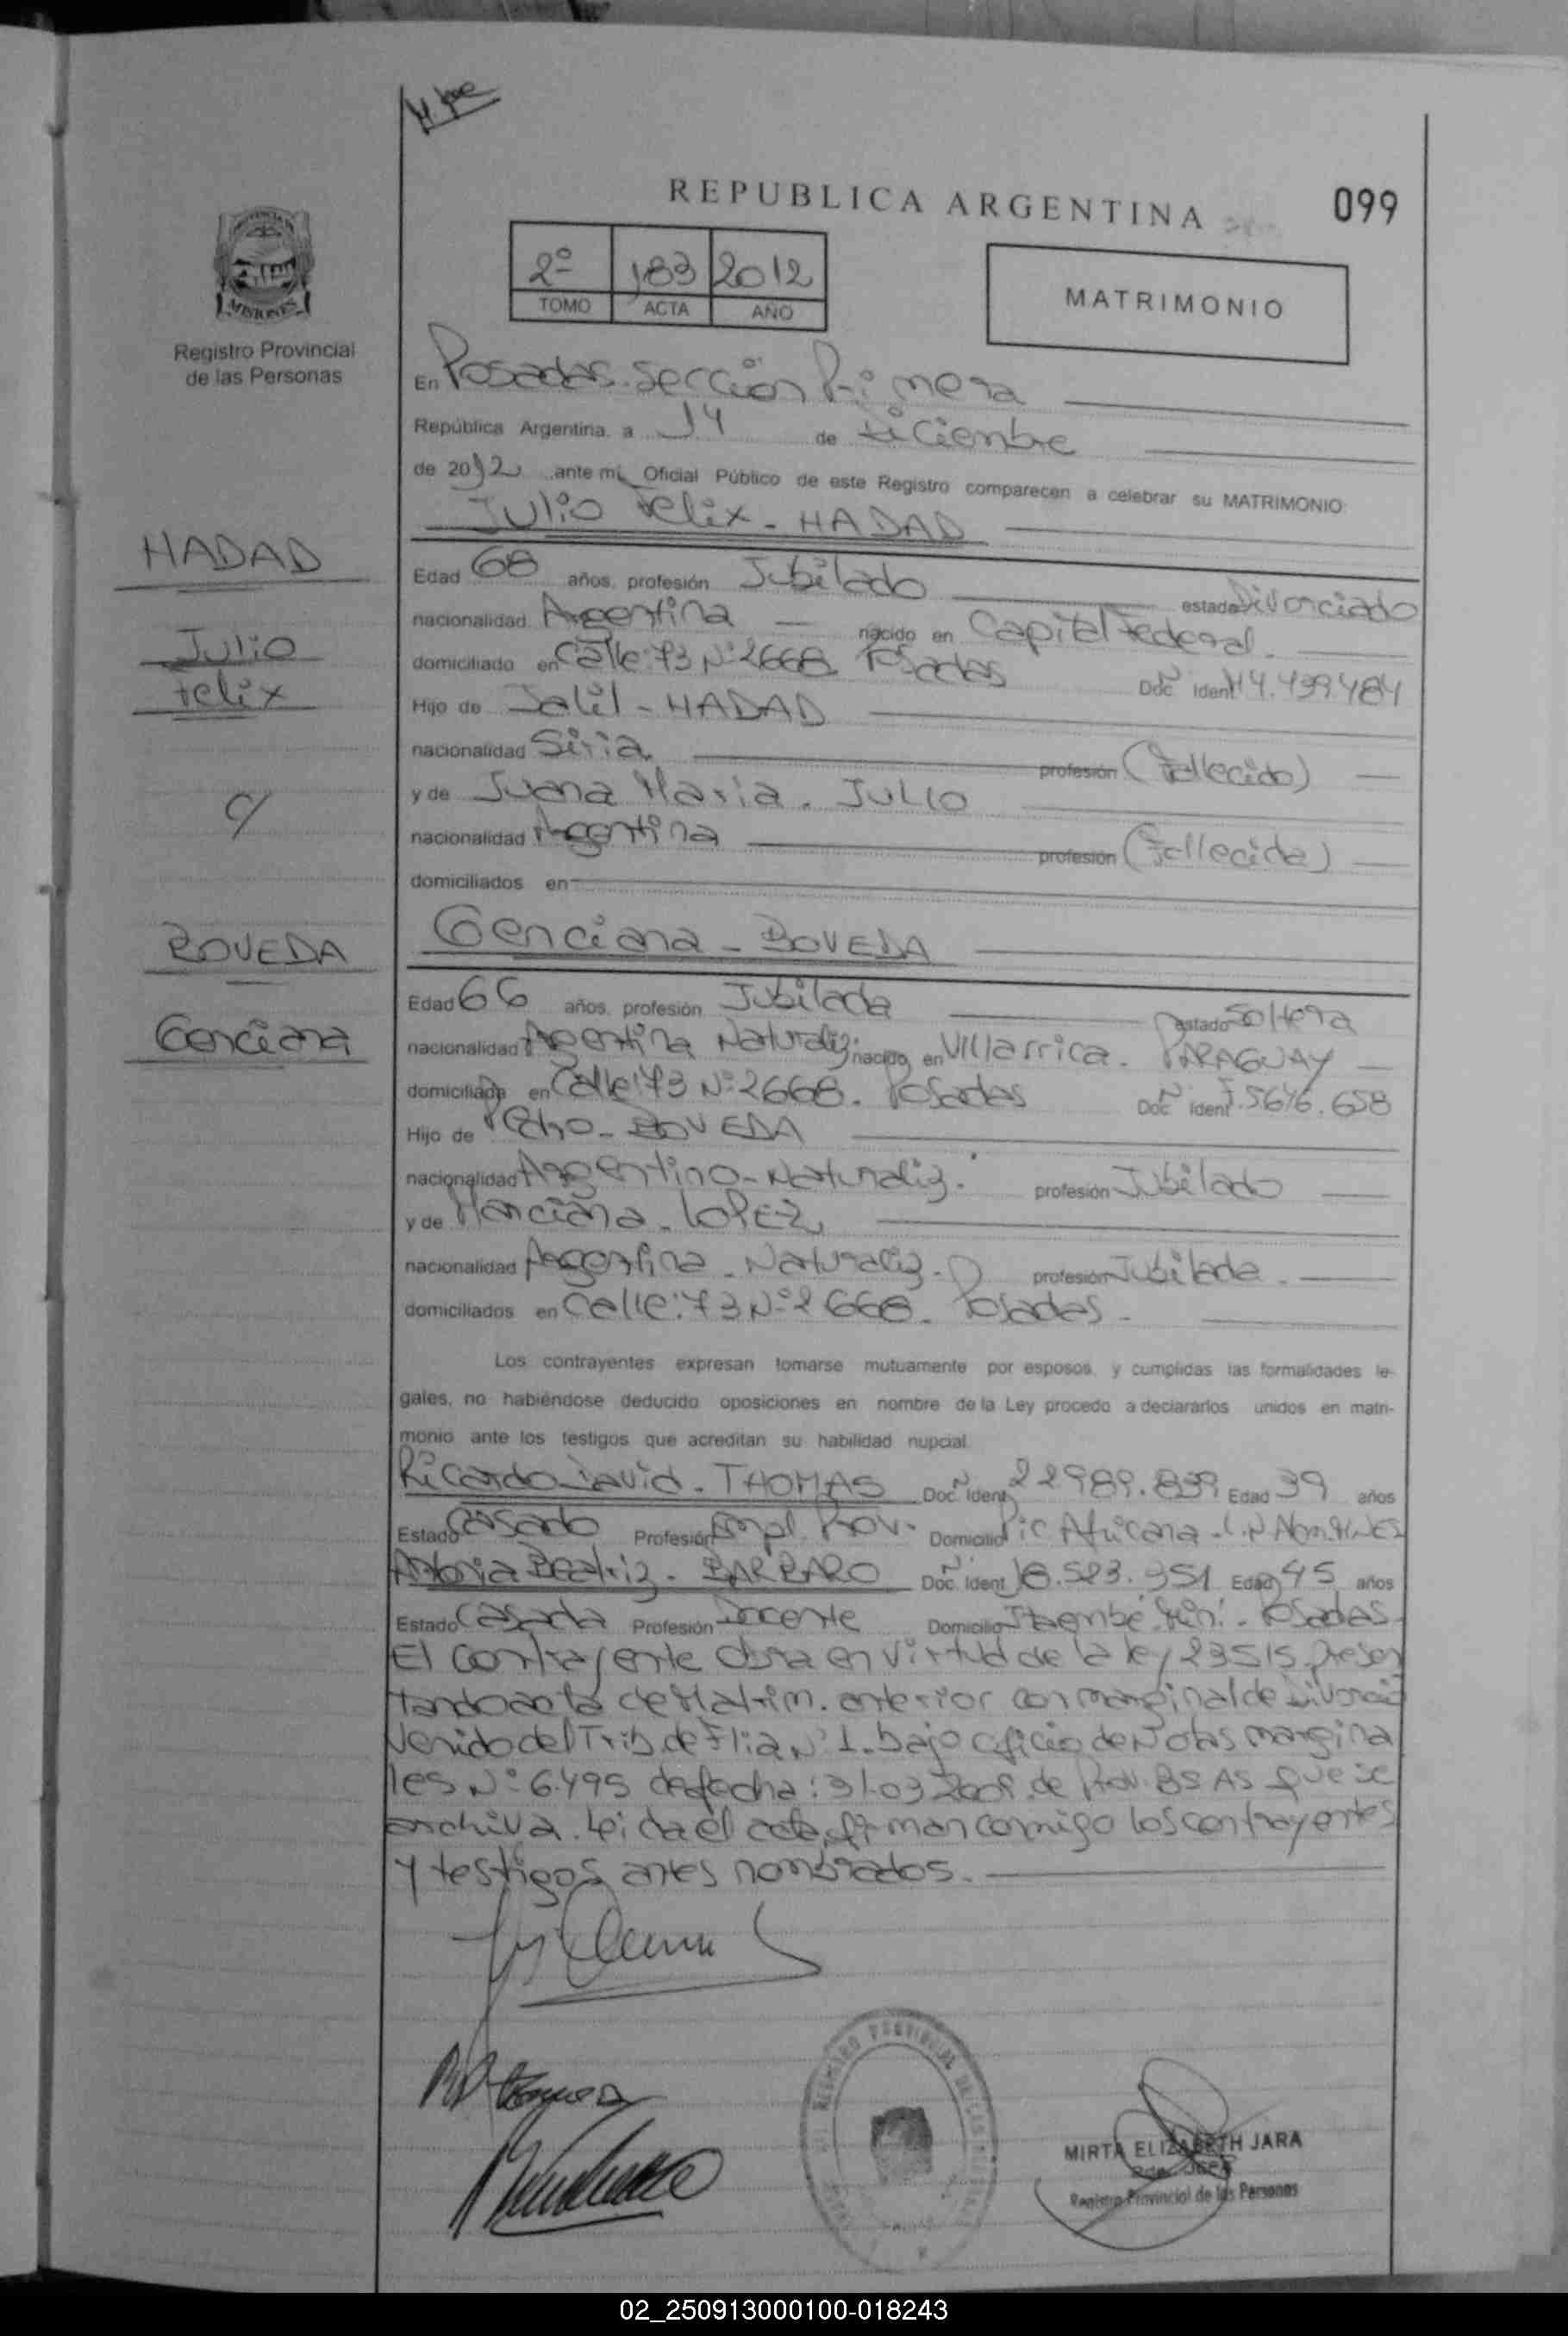 REPUBLICA ARGENTINA
099
2º 183 2012
TOMO ACTA AÑO
MATRIMONIO
MISIONES
Registro Provincial
de las Personas
En Posadas. sección Primera
República Argentina, a 14 de diciembre
de 2012 ante mí, Oficial Público de este Registro comparecen a celebrar su MATRIMONIO:
Julio Felix - HADAD
HADAD
Julio
Felix
c/
BOVEDA
Genciana
Edad 68 años, profesión Jubilado estado Divorciado
nacionalidad Argentina nacido en Capital Federal.
domiciliado en Calle: 73 Nº 2668. Posadas Doc. Ident. Nº 4.439.484
Hijo de Jalil - HADAD
nacionalidad Siria profesión (Fallecido)
y de Juana Maria. JULIO
nacionalidad Argentina profesión (Fallecida)
domiciliados en
Genciana - BOVEDA
Edad 66 años, profesión Jubilada estado Soltera
nacionalidad Argentina Naturaliz. nacido en Villarrica. PARAGUAY
domiciliada en Calle: 73 Nº 2668. Posadas Doc. Ident. Nº 5.676.658
Hijo de Pedro - BOVEDA
nacionalidad Argentino - Naturaliz. profesión Jubilado
y de Marciana. LOPEZ
nacionalidad Argentina. Naturaliz. profesión Jubilada.
domiciliados en Calle: 73 Nº 2668. Posadas.
Los contrayentes expresan tomarse mutuamente por esposos, y cumplidas las formalidades le-
gales, no habiéndose deducido oposiciones en nombre de la Ley procedo a declararlos unidos en matri-
monio ante los testigos que acreditan su habilidad nupcial.
Ricardo David. THOMAS Doc. Ident. Nº 22989.839 Edad 39 años
Estado Casado Profesión Empl. Prov. Domicilio Pic Africana
Beatriz. BARBARO Doc. Ident. Nº 18.523.951 Edad 45 años
Estado Casada Profesión Docente Domicilio Itaembé Miní. Posadas.
El contrayente obra en virtud de la ley 23515 presen
tando acta de Matrim. anterior con marginal de Divorcio
Venido del Trib. de Flia Nº 1. bajo oficio de Notas margina
les Nº 6.495 de fecha: 31.03.2009. de Prov. BS AS que se
archiva. Leida el acta, firman conmigo los contrayentes
y testigos antes nombrados.
REGISTRO PROVINCIAL DE LAS PERSONAS
MIRTA ELIZABETH JARA
Registro Provincial de las Personas
02_250913000100-018243